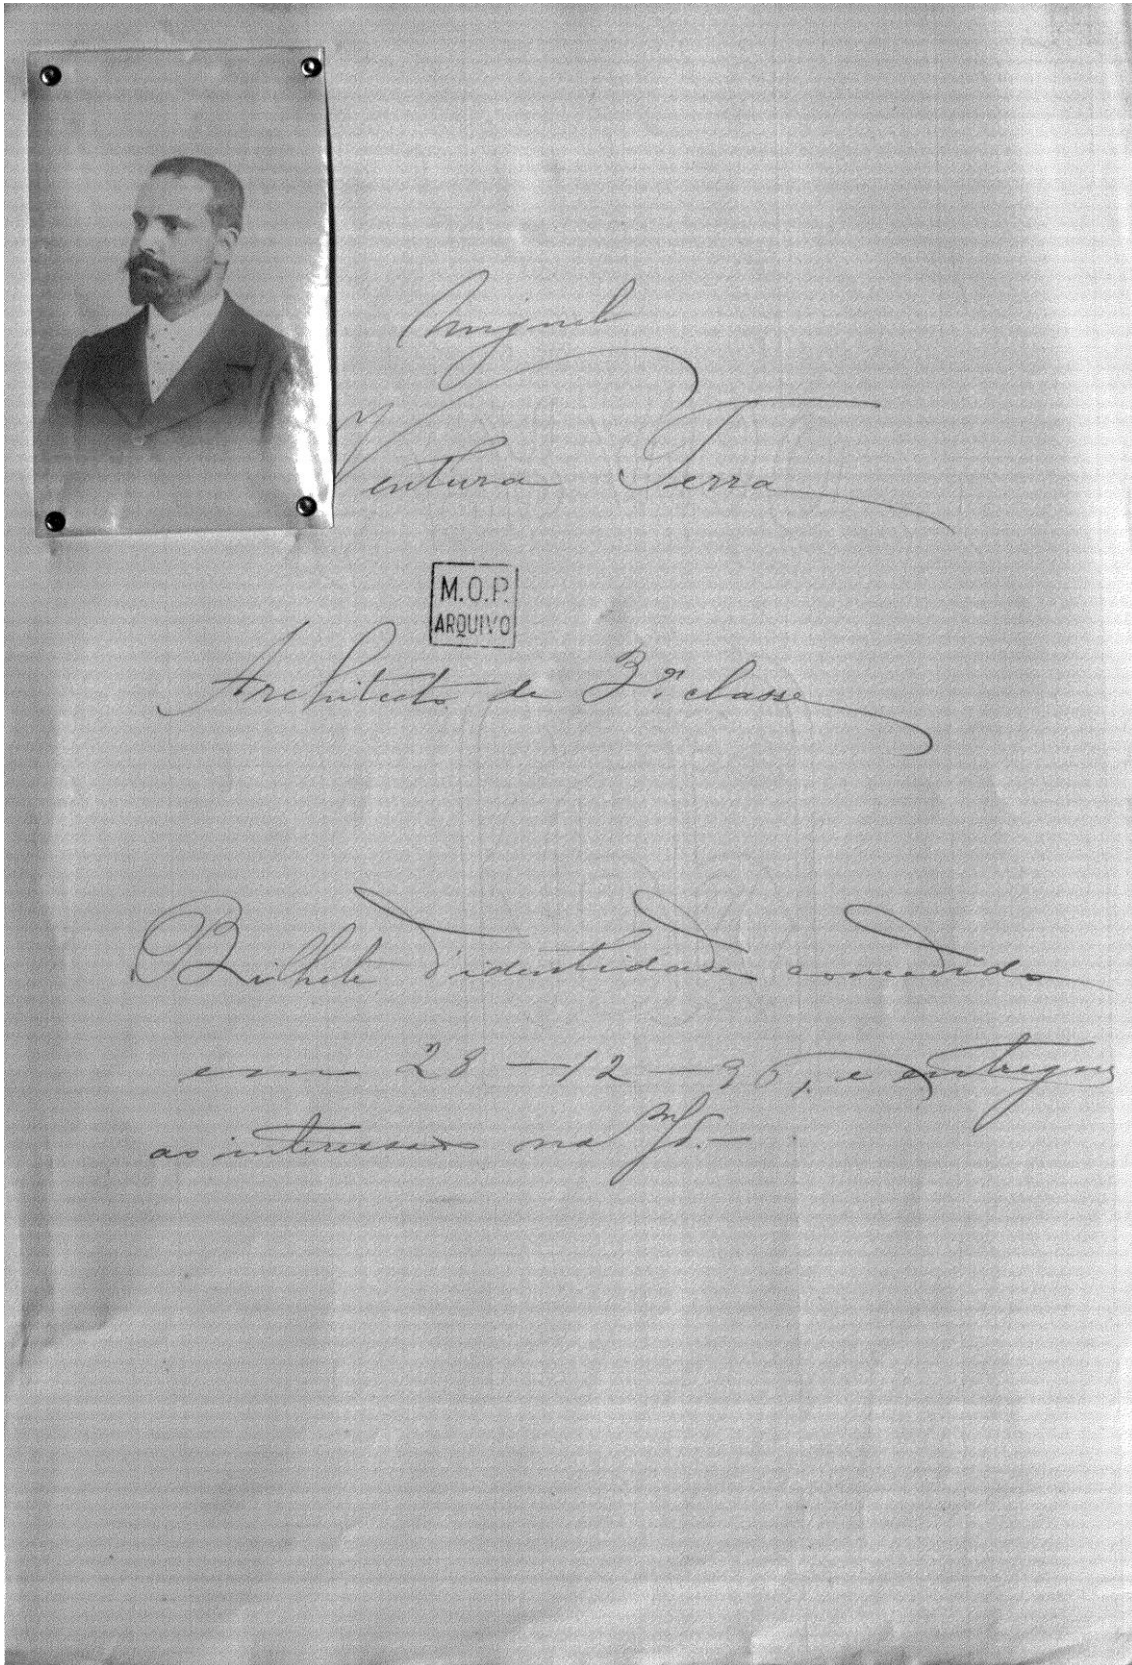 Miguel
Ventura Terra
M.O.P.
ARQUIVO
Architecto de 3ª classe
Bilhete d'identidade concedido
em 28-12-96, e entregue
ao interessado na